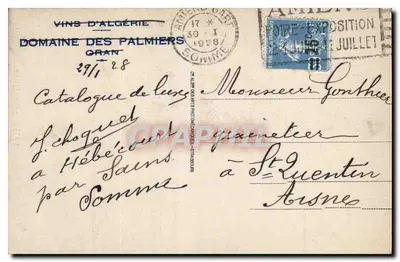 VINS D'ALGÉRIE
DOMAINE DES PALMIERS
ORAN
29/1 28
AMIENS GARE
17 *
30 - 1
1928
SOMME
FOIRE-EXPOSITION
JUILLET
Catalogue de luxe
J. Choquet
à Hébécourt
par Sains
Somme
Monsieur Gonthier
grainetier
à St Quentin
Aisne